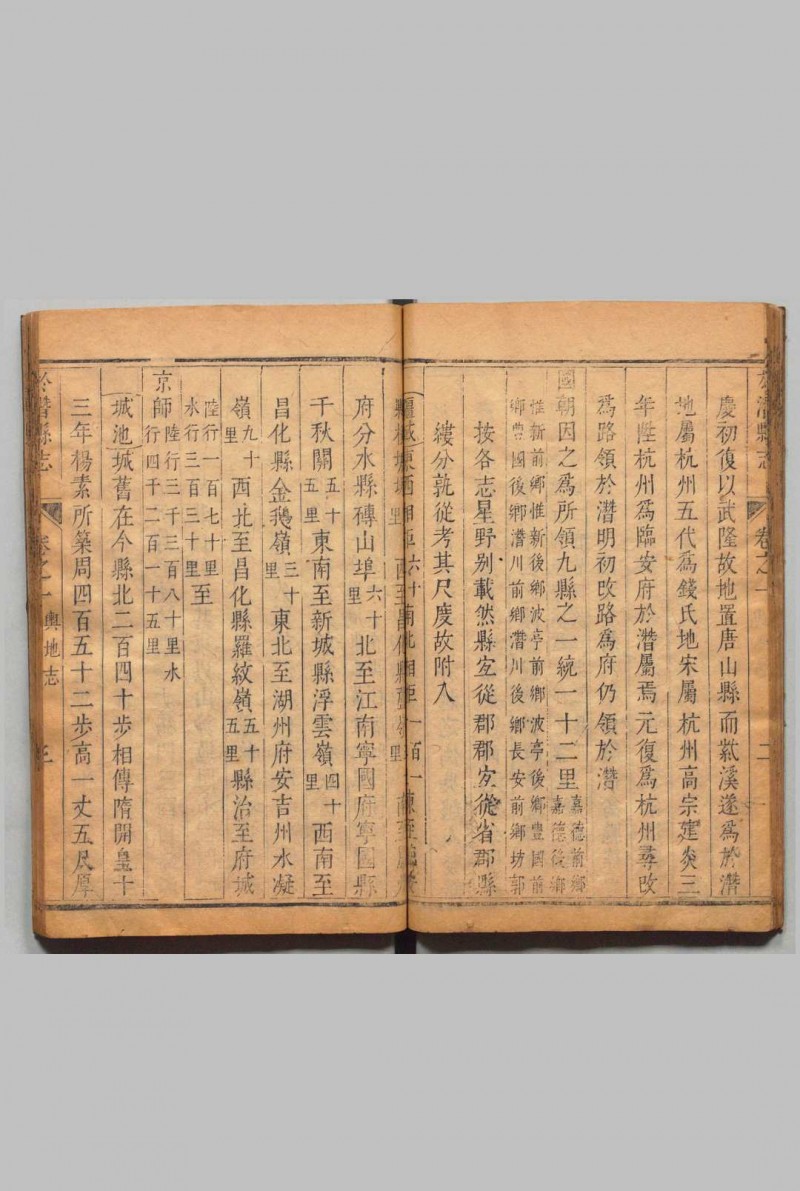 於潛縣志 卷之一 二
慶初復以武隆故地置唐山縣而紫溪遂爲於潛
地屬杭州五代爲錢氏地宋屬杭州高宗建炎三
年陞杭州爲臨安府於潛屬焉元復爲杭州尋改
爲路領於潛明初改路爲府仍領於潛
國朝因之爲所領九縣之一統一十二里嘉德前鄉嘉德後鄉
惟新前鄉惟新後鄉波亭前鄉波亭後鄉豊國前
鄉豊國後鄉潛川前鄉潛川後鄉長安前鄉坊郭
按各志星野別載然縣宜從郡郡宜從省郡縣
縷分孰從考其尺度故附入
疆域東西相距六十里南北相距一百一
府分水縣磚山埠六十里北至江南寧國府寧國縣
千秋關五十里東南至新城縣浮雲嶺四十里西南至
昌化縣金鵝嶺三十里東北至湖州府安吉州水凝
嶺九十里西北至昌化縣羅紋嶺五十五里縣治至府城
陸行一百七十里
水行三百三十里至
京師陸行三千三百八十里水行四千二百一十五里
城池城舊在今縣北二百四十步相傳隋開皇十
三年楊素所築周四百五十二步高一丈五尺厚
於潛縣志 卷之一 輿地志 三